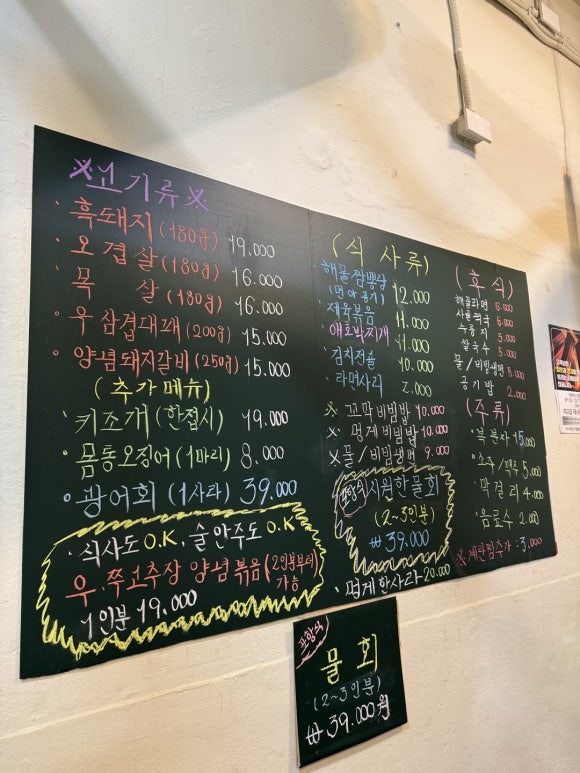 ※고기류※
·흑돼지 (180g) 19.000
·오겹살 (180g) 16.000
·목 살 (180g) 16.000
·우삼겹대패 (200g) 15.000
·양념돼지갈비 (250g) 15.000
(추가메뉴)
·키조개 (한접시) 19.000
·몸통오징어 (1마리) 8.000
·광어회 (1사라) 39.000
·식사도 O.K, 술안주도 O.K
우.쭈고추장 양념볶음 (2인분부터 가능
1인분 19.000
(식사류)
해물짬뽕탕
(면 or 공기) 12.000
·제육볶음 11.000
·애호박찌개 11.000
·김치전골 10.000
·라면사리 2.000
※ 꼬막비빔밥 10.000
※ 멍게비빔밥 10.000
※물/비빔냉면 9.000
포항식 시원한 물회
(2~3인분)
₩39.000
·멍게한사라 20.000
(후식)
해물라면 6.000
누룽지 3.000
쌀국수 5.000
물/비빔냉면 5.000
공기밥 2.000
(주류)
·복분자 15,000
·소주/맥주 5,000
·막걸리 4.000
·음료수 2.000
※계란찜추가 : 3.000
포항식
물회
(2~3인분)
₩39.000원